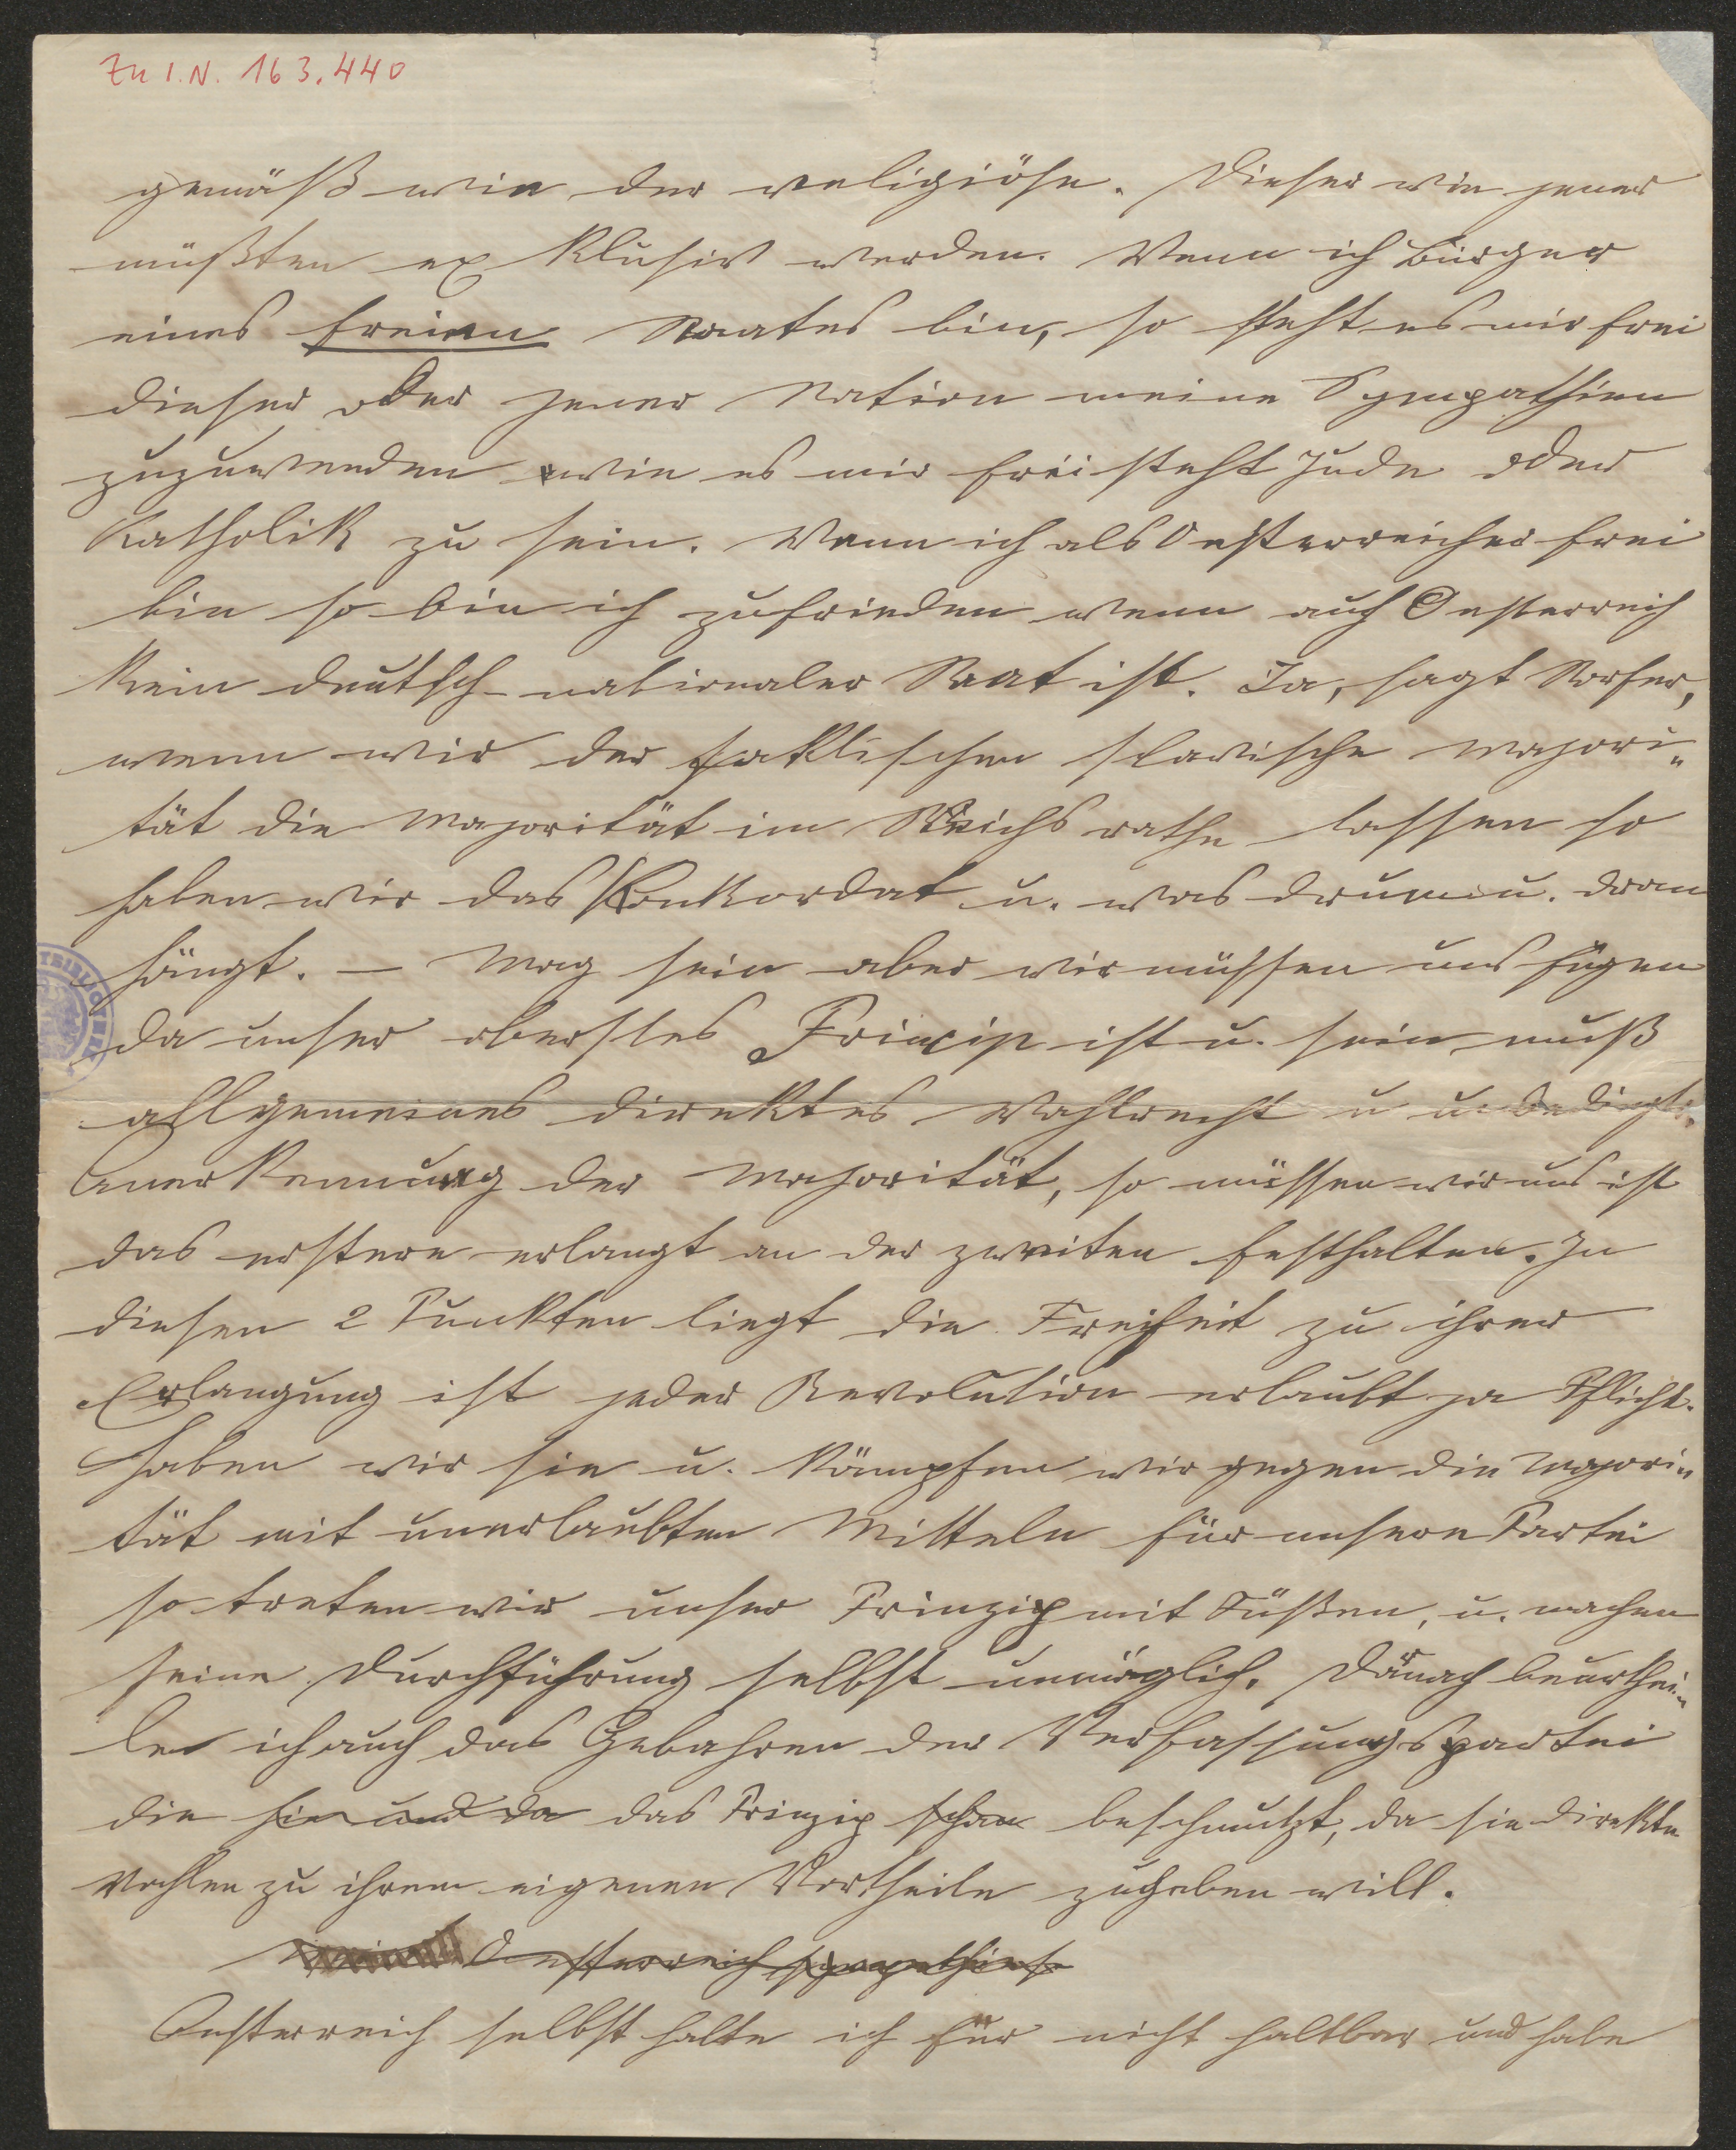 Zu I.N. 163.440
gemäß wie der religiöse. Dieser wie jener
müßten exklusiv werden. Wenn ich Bürger
eines freien Staates bin, so steht es mir frei
dieser oder jener Nation meine Sympathien
zuzuwenden wie es mir frei steht Jude oder
Katholik zu sein. Wenn ich als Oesterreicher frei
bin so bin ich zufrieden wenn auch Oesterreich
kein deutsch-nationaler Staat ist. Ja, sagt
wenn wir der faktischen slavische Majori„
tät die Majorität im Reichsrathe lassen so
haben wir das Konkordat u. was drum u. dran
hängt. — Mag sein aber wir müssen uns fügen
da unser oberstes Princip ist u. sein muß
allgemeines direktes Wahlrecht u unbedingte
Anerkennung der Majorität, so müssen wir uns ist
das erstere erlangt an der zweiten festhalten. In
diesen 2 Punkten liegt die Freiheit zu ihrer
Erlangung ist jeder Revolution erlaubt ja Pflicht.
Haben wir sie u. kämpfen wir gegen die Majori„
tät mit unerlaubten Mitteln für unsere Partei
so treten wir unser Prinzip mit Füßen, u. machen
seine Durchführung selbst unmöglich. Darnach beurthei„
le ich auch das Gebahren der Verfassungspartei
die hie und da das Prinzip schon beschmutzt, da sie direkte
Wahlen zu ihrem eigenen Vortheile zugeben will.
Oesterreich
Oesterreich selbst halte ich für nicht haltbar und habe